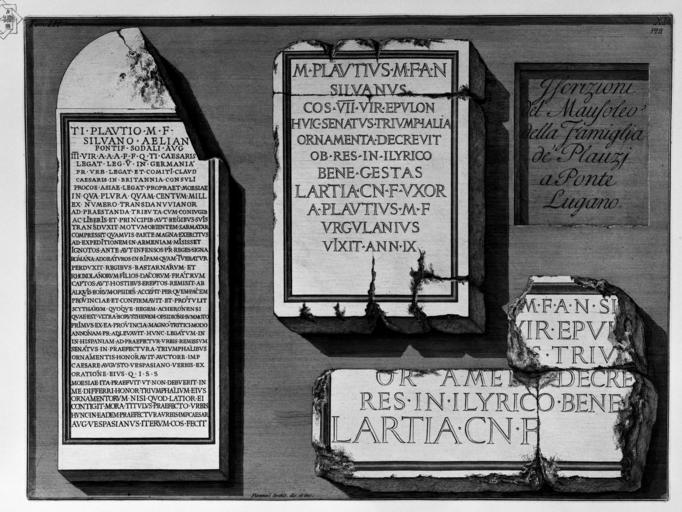 TI·PLAVTIO·M·F·
SILVANO·AELIAN
PONTIF·SODALI·AVG
III·VIR·A·A·A·F·F·Q·TI·CAESARIS
LEGAT·LEG·V·IN·GERMANIA
PR·VRB·LEGAT·ET·COMITI·CLAVD
CAESARIS·IN·BRITANNIA·CONSVLI
PROCOS·ASIAE·LEGAT·PROPRAET·MOESIAE
IN·QVA·PLVRA·QVAM·CENTVM·MILL
EX·NVMERO·TRANSDANVVIANOR
AD·PRAESTANDA·TRIBVTA·CVM·CONIVGIB
AC·LIBERIS·ET·PRINCIPIB·AVT·REGIBVS·SVIS
TRANSDVXIT·MOTVM·ORIENTEM·SARMATAR
COMPRESSIT·QVAMVIS·PARTE·MAGNA·EXERCITVS
AD·EXPEDITIONEM·IN·ARMENIAM·MISISSET
IGNOTOS·ANTE·AVT·INFENSOS·P·R·REGES·SIGNA
ROMANA·ADORATVROS·IN·RIPAM·QVAM·TVEBATVR
PERDVXIT·REGIBVS·BASTARNARVM·ET
RHOXOLANORVM·FILIOS·DACORVM·FRATRVM
CAPTOS·AVT·HOSTIBVS·EREPTOS·REMISIT·AB
ALIQVIS·EORVM·OPSIDES·ACCEPIT·PER·QVEM·PACEM
PROVINCIAE·ET·CONFIRMAVIT·ET·PROTVLIT
SCYTHARVM·QVOQVE·REGEM·A·CHERONENSI
QVAE·EST·VLTRA·BORVSTHENEN·OPSIDIONE·SVMMOTO
PRIMVS·EX·EA·PROVINCIA·MAGNO·TRITICI·MODO
ANNONAM·P·R·ADLEVAVIT·HVNC·LEGATVM·IN
IN·HISPANIAM·AD·PRAEFECTVR·VRBIS·REMISSVM
SENATVS·IN·PRAEFECTVRA·TRIVMPHALIBVS
ORNAMENTIS·HONORAVIT·AVCTORE·IMP
CAESARE·AVGVSTO·VESPASIANO·VERBIS·EX
ORATIONE·EIVS·Q·I·S·S
MOESIAE·ITA·PRAEFVIT·VT·NON·DEBVERIT·IN
ME·DIFFERRI·HONOR·TRIVMPHALIVM·EIVS
ORNAMENTORVM·NISI·QVOD·LATIOR·EI
CONTIGIT·MORA·TITVLVS·PRAEFECTO·VRBIS
HVNC·IN·EADEM·PRAEFECTVRA·VRBIS·IMP·CAESAR
AVG·VESPASIANVS·ITERVM·COS·FECIT
M·PLAVTIVS·M·F·A·N
SILVANVS
COS·VII·VIR·EPVLON
HVIC·SENATVS·TRIVMPHALIA
ORNAMENTA·DECREVIT
OB·RES·IN·ILYRICO
BENE·GESTAS
LARTIA·CN·F·VXOR
A·PLAVTIVS·M·F
VRGVLANIVS
VIXIT·ANN·IX
Iscrizioni
del Mausoleo
della Famiglia
de' Plauzj
a Ponte
Lugano.
M·F·A·N·SI
VIR·EPVL
S·TRIV
OR AMET DECRE
RES·IN·ILYRICO·BENE
LARTIA·CN·F
Piranesi Archit. dis. et inc.